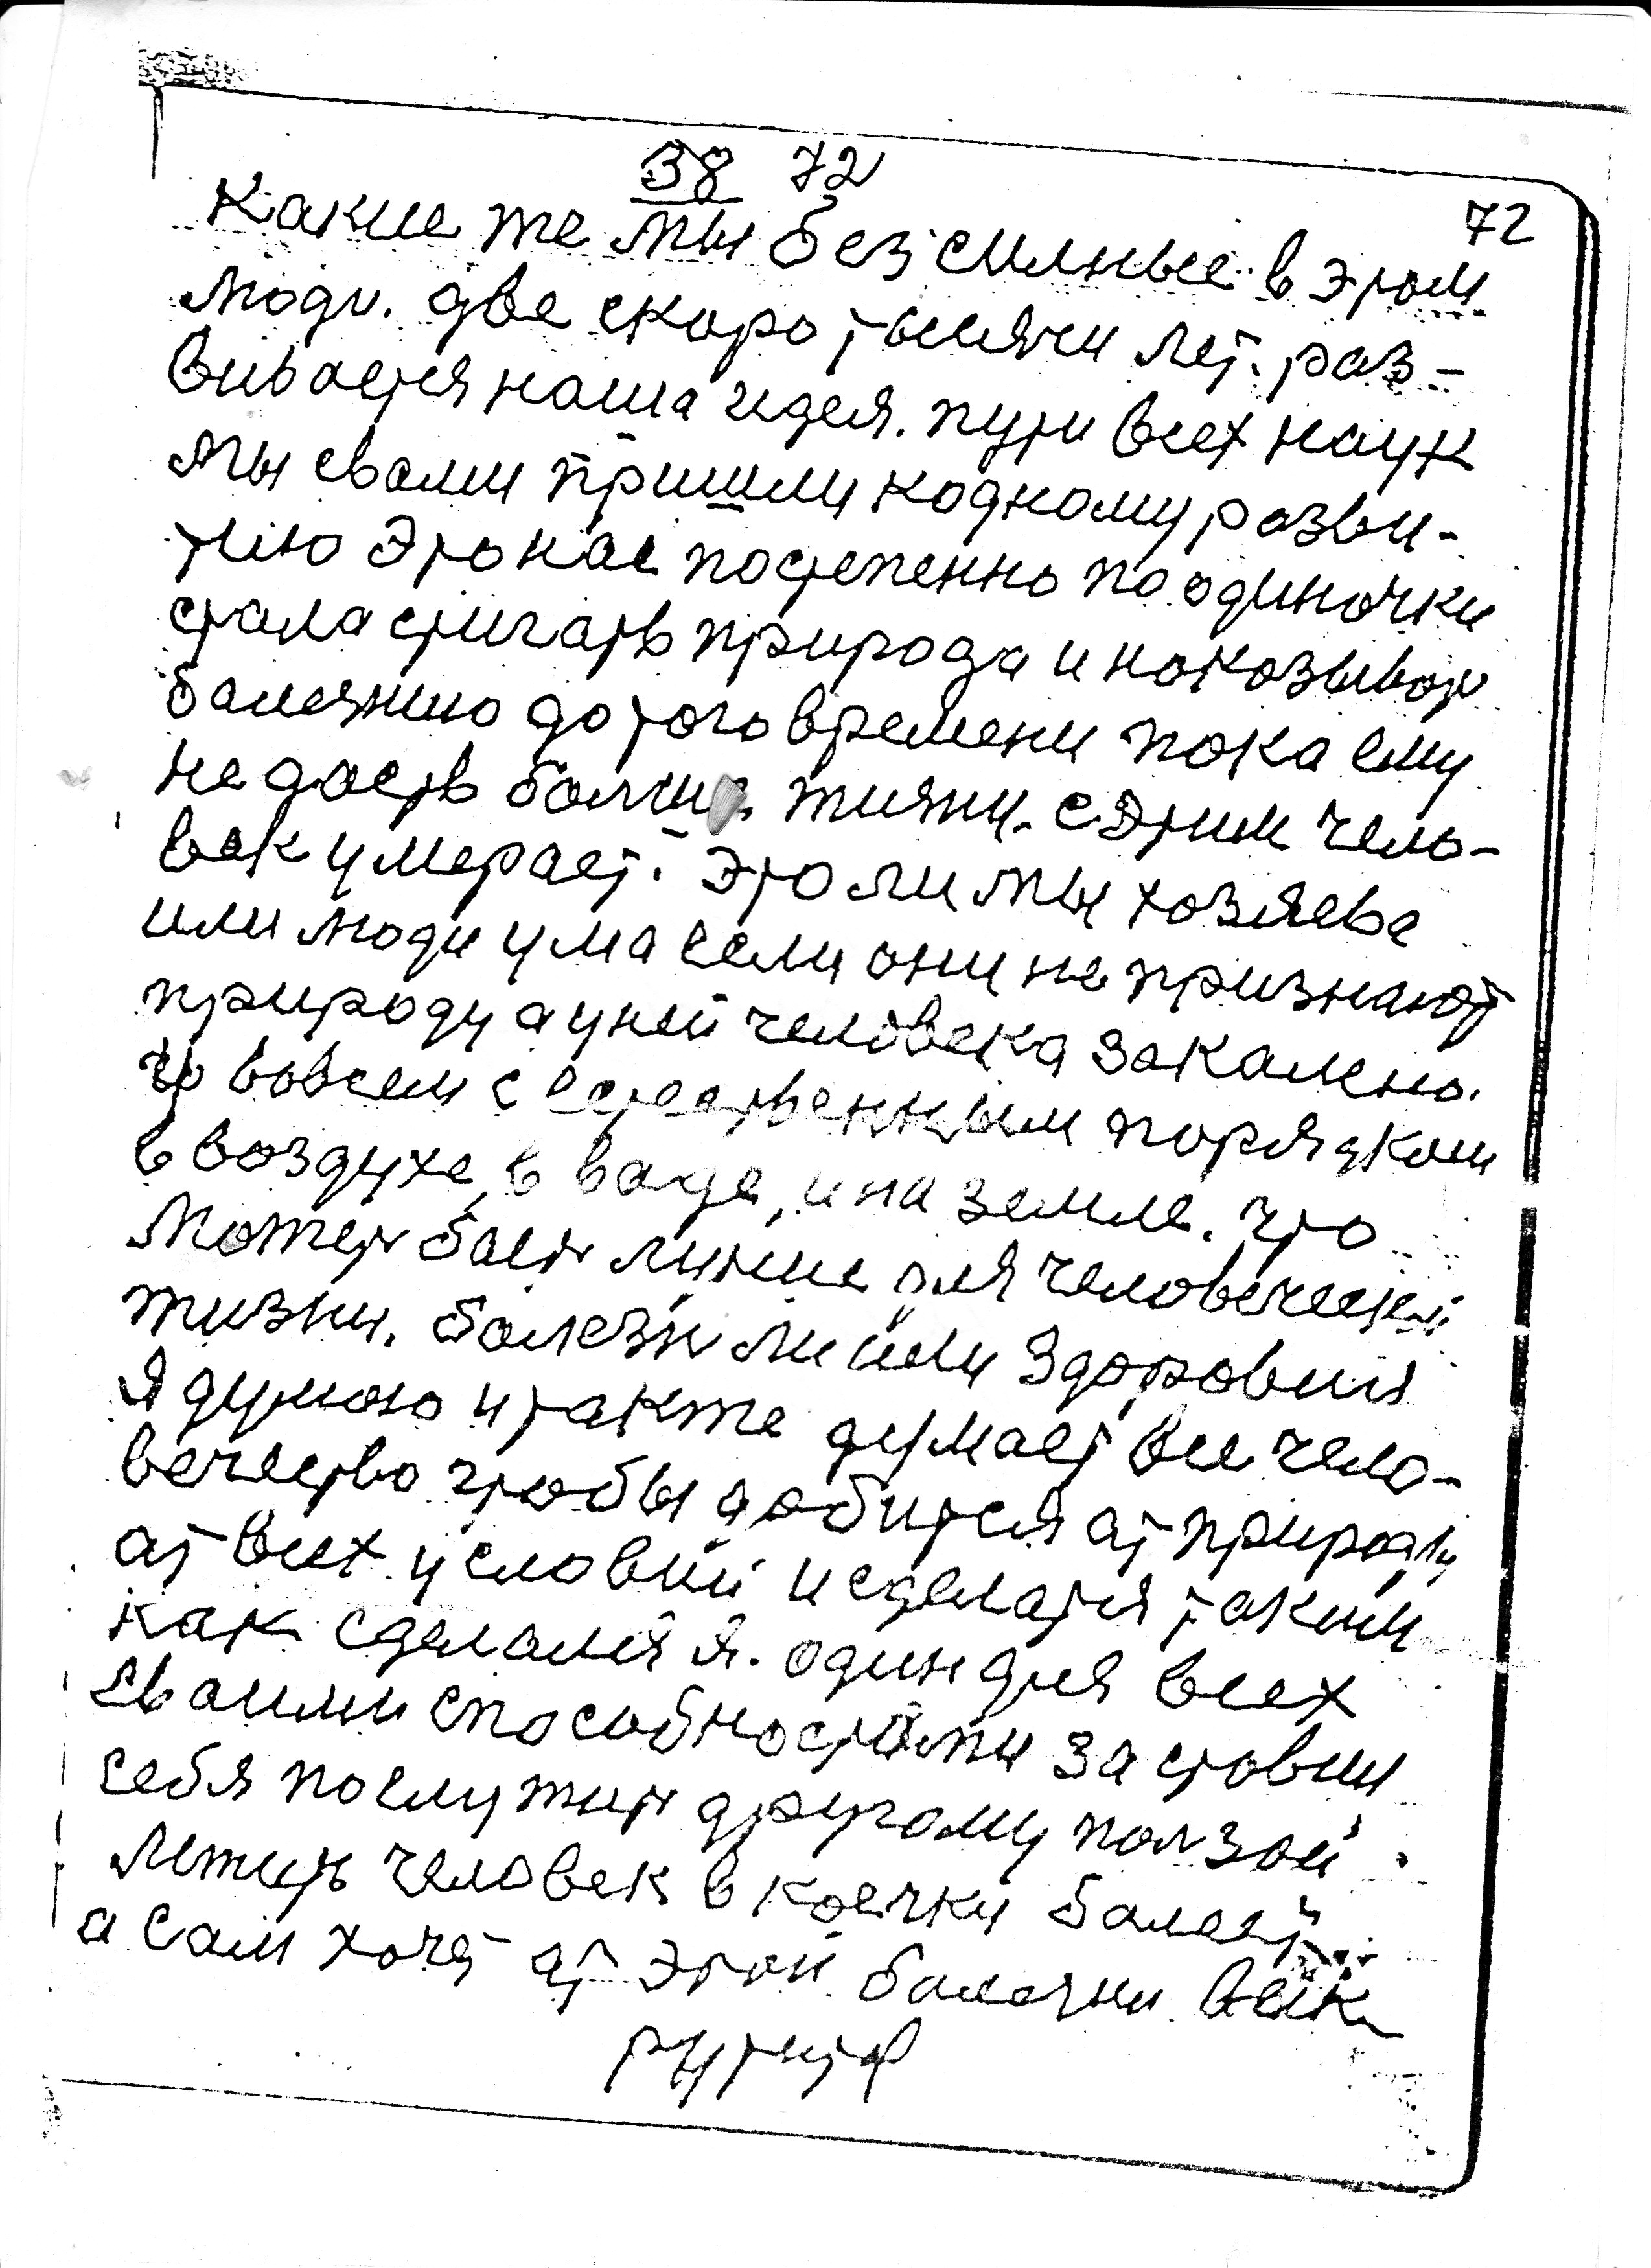 38 72
72
Какие же мы безсилные в этом
люди. две скоро тысячи лет. раз-
вивается наша идея. пути всех наук
мы сваими пришли кодному разви-
тию Это нас постепенно по одиночки
стала стигать природа и наказыват
балезнию до того времени пока ему
не дость болши жизни. с Этим чело-
век умерает. Это ли мы хозяева
или люди ума если они не признают
природу а уней человека закалено.
что вовсем с естественным порядком
в воздухе, в ваде, и на земле. что
может быт лутше для человеческой
жизни. болезн ли или здоровия
Я думаю и также думает все чело-
вечество чтобы добится ат природы
ат всех условий и сделатся таким
как сделался я. один для всех
Сваими способностями заставил
себя послужит другому ползой.
Лежить человек в коечки балеет
а Сам хочет ат этой балезни вык
рутитъ